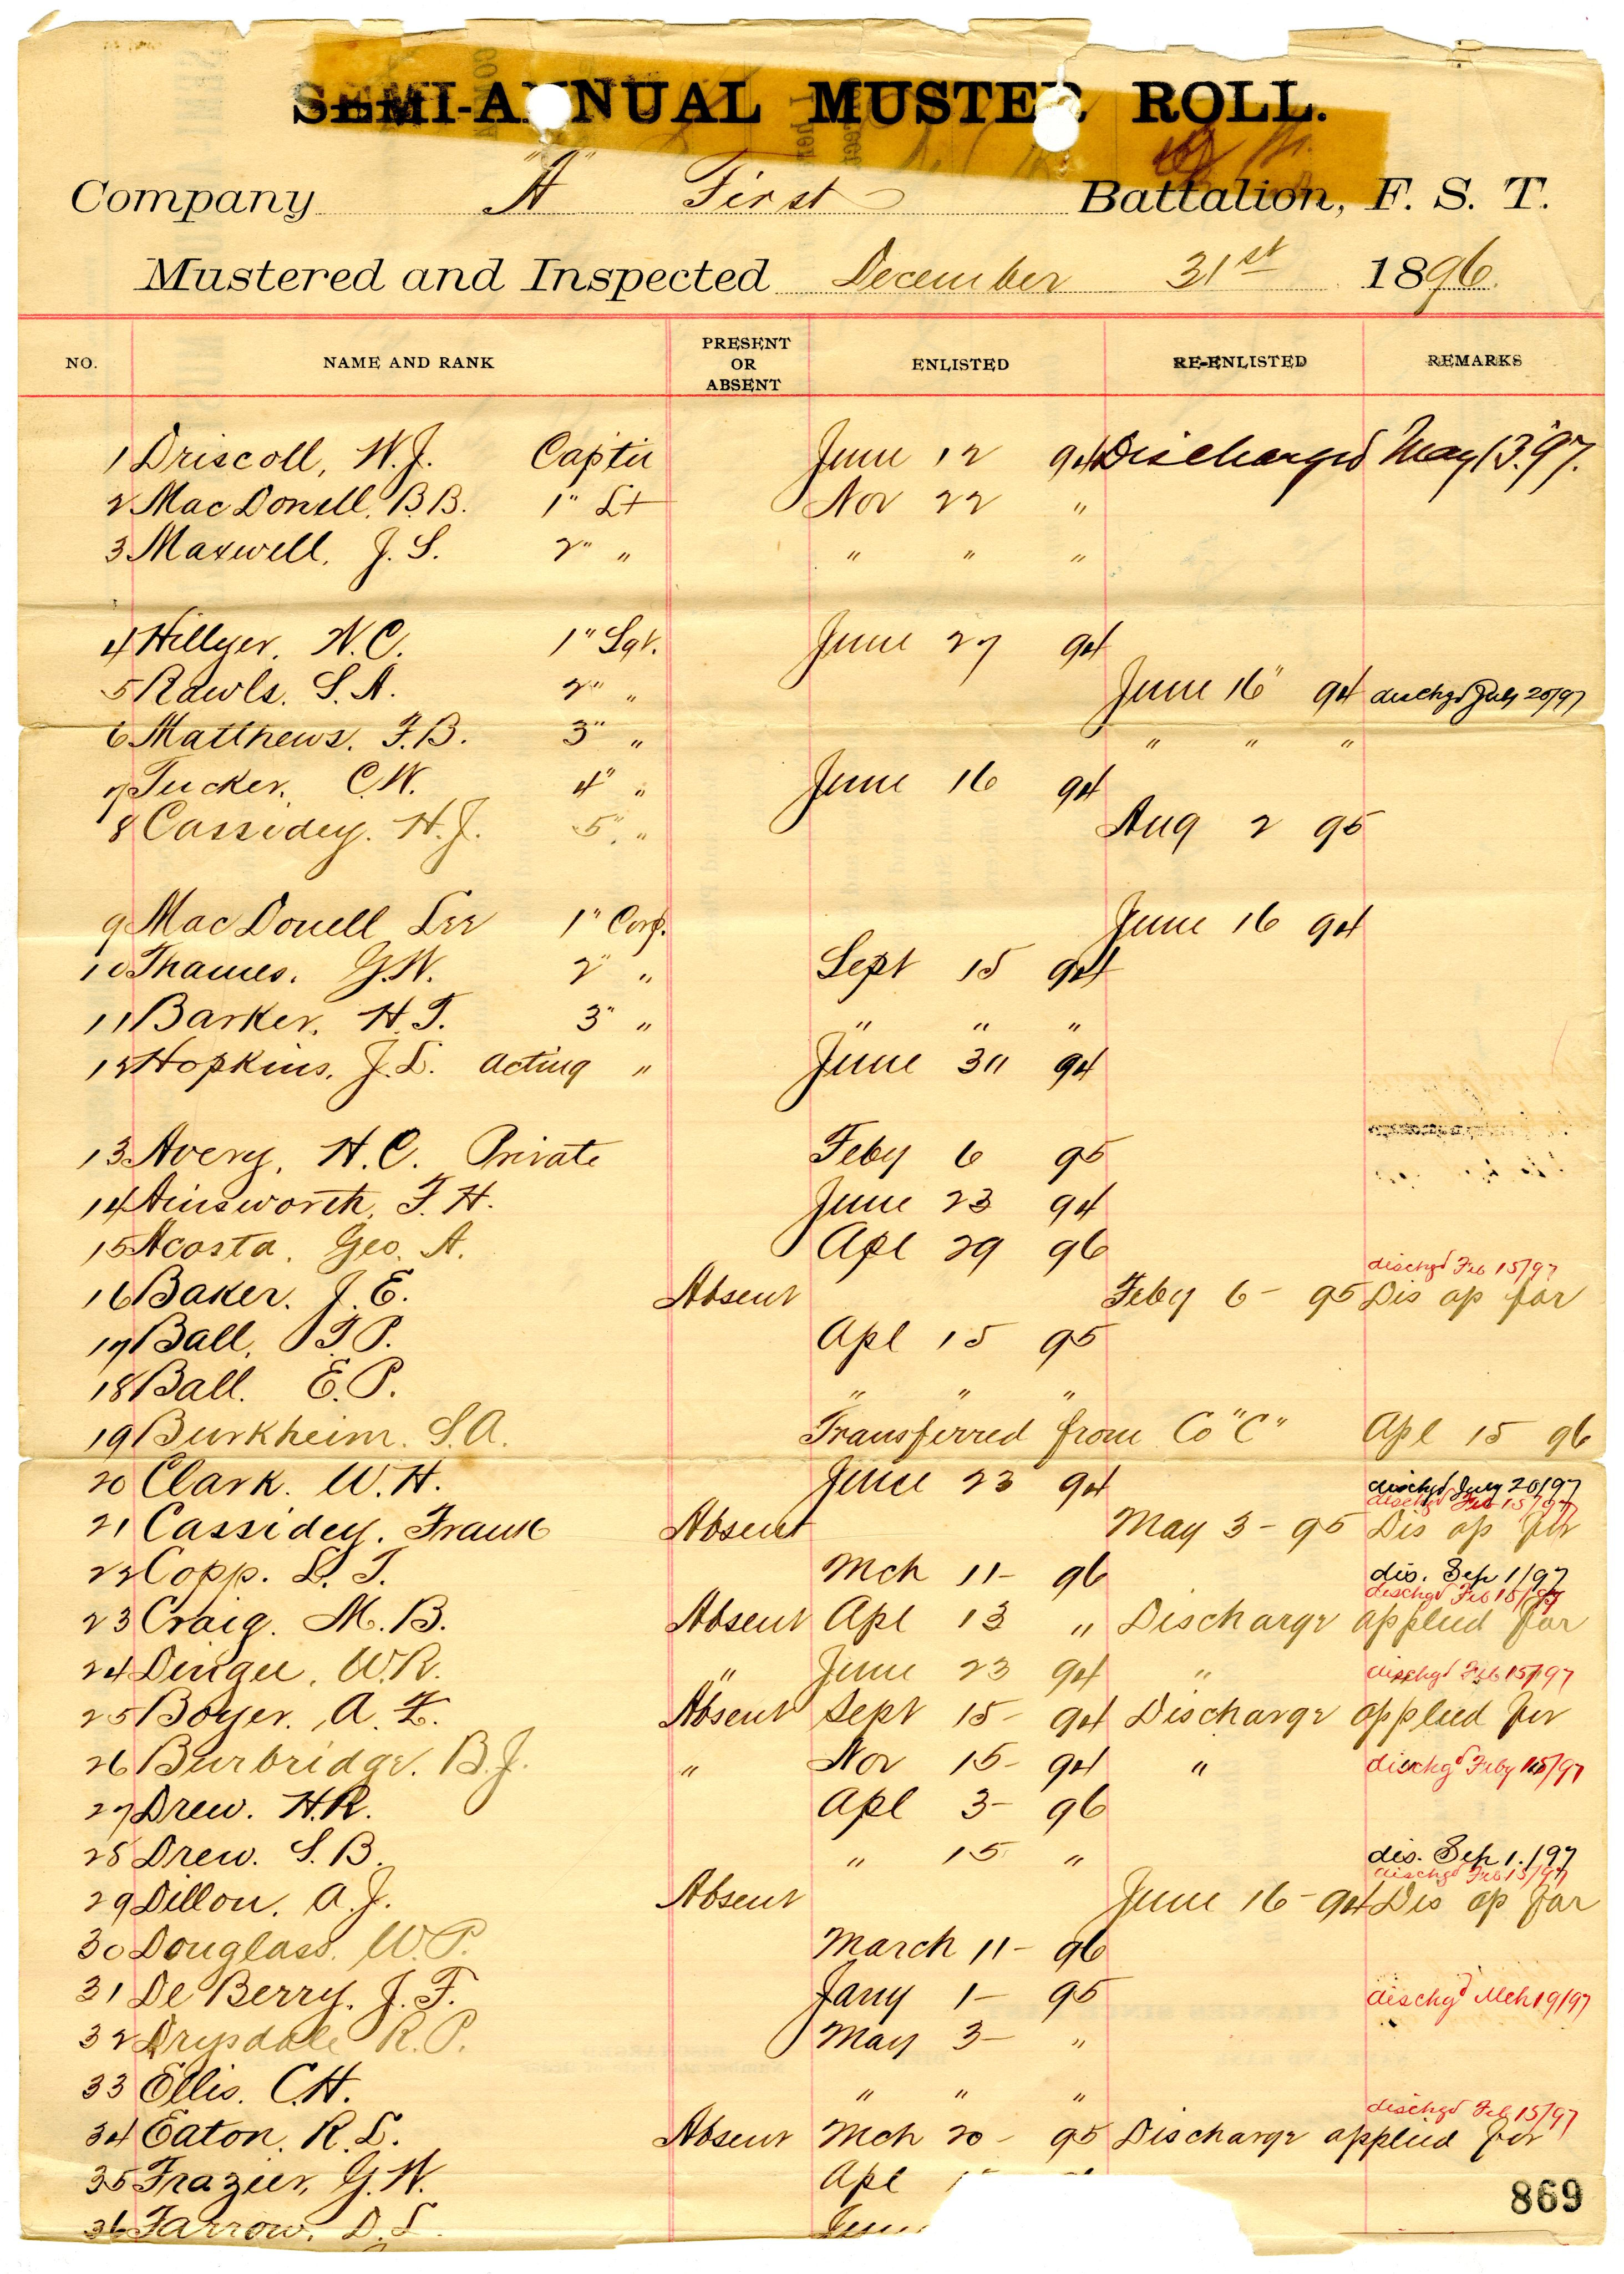 SEMI-ANNUAL MUSTER ROLL.
Company "A" First Battalion, F. S. T.
Mustered and Inspected December 31st 1896
NO. NAME AND RANK PRESENT OR ABSENT ENLISTED RE-ENLISTED REMARKS
1 Driscoll, W. J. Captn June 12 94 Discharged May 13. 97.
2 MacDonell, B. B. 1" Lt Nov 22 "
3 Maxwell, J. S. 2" " " " "
4 Hillyer, N. C. 1" Sgt. June 27 94
5 Rawls. S. A. 2" " June 16" 94 dischgd July 20/97
6 Matthews. F. B. 3" " " " "
7 Tucker, C. W. 4" " June 16 94
8 Cassidey. H. J. 5" " Aug 2 95
9 MacDonell Lee 1" Corp. June 16 94
10 Thames. G. W. 2" " Sept 15 94
11 Barker. H. T. 3" " " " "
12 Hopkins. J. L. Acting " June 30 94
13 Avery, H. C. Private Feby 6 95
14 Ainsworth, F. H. June 23 94
15 Acosta, Geo. A. Apl 29 96
dischgd Feb 15/97
16 Baker. J. E. Absent Feby 6- 95 Dis ap for
17 Ball, T. P. Apl 15 95
18 Ball. E. P. " " "
19 Burkheim. S. A. Transferred from Co "C" Apl 15 96
20 Clark. W. H. June 23 94 dischgd July 20/97
dischgd Feb 15/97
21 Cassidey. Frank Absent May 3- 95 Dis ap for
22 Copp. L. T. Mch 11- 96 dis. Sep 1/97
dischgd Feb 15/97
23 Craig. M. B. Absent Apl 13 " Discharge applied for
24 Dingee, W. R. " June 23 94 " dischgd Feb 15/97
25 Boyer. A. Z. Absent Sept 15- 94 Discharge applied for
26 Burbridge. B. J. " Nov 15- 94 " dischgd Feby 15/97
27 Drew. H. R. Apl 3- 96
28 Drew. S. B. " 15 " dis. Sep 1./97
dischgd Feb 15/97
29 Dillon. A. J. Absent June 16- 94 Dis ap for
30 Douglass. W. P. March 11- 96
31 De Berry. J. F. Jany 1- 95 dischgd Mch 19/97
32 Drysdale R. P. May 3- "
33 Ellis. C. H. " " "
dischgd Feb 15/97
34 Eaton. R. L. Absent Mch 20- 95 Discharge applied for
35 Frazier, G. W. Apl
36 Farrow. D. L.
869